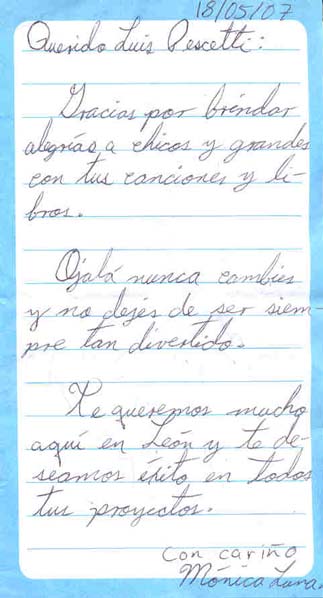 18/05/07
Querido Luis Pescetti:
Gracias por brindar
alegrías a chicos y grandes
con tus canciones y li-
bros.
Ojalá nunca cambies
y no dejés de ser siem-
pre tan divertido.
Te queremos mucho
aquí en León y te de-
seamos éxito en todos
tus proyectos.
Con cariño
Mónica Luna.